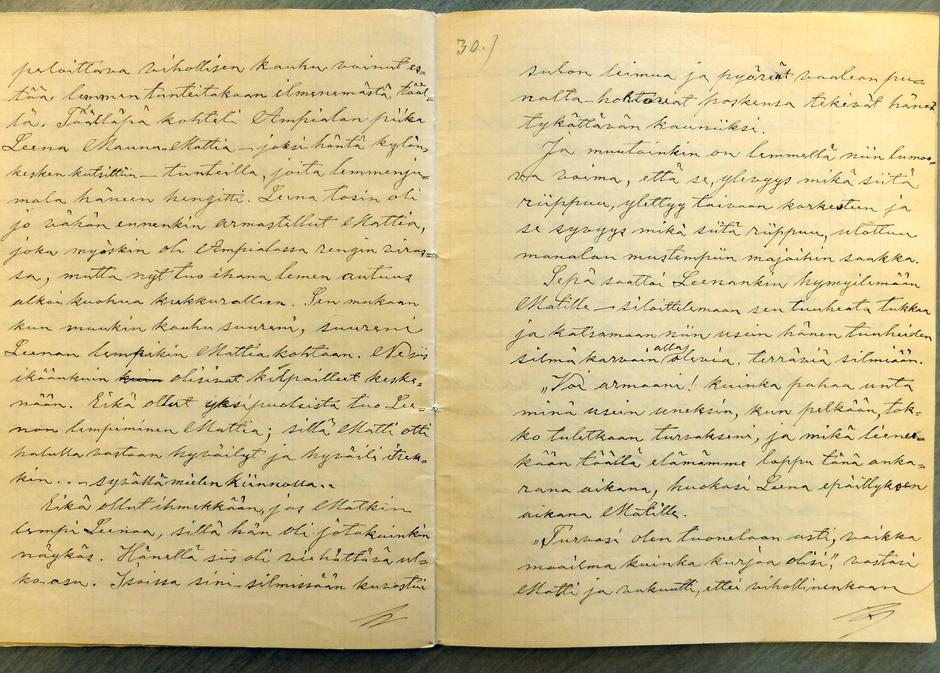 peloittava vihollisen kauhu voinut es=
tää lemmen tunteitakaan ilmenemästä tääl=
lä. Täälläpä kohteli Ampialan piika
Leena Mauna-Mattia – joksi häntä kylän
kesken kutsittiin – tunteilla, joita lemmenju=
mala häneen hengitti. Leena tosin oli
jo vähän ennenkin armastellut Mattia,
joka myöskin oli Ampialassa rengin viras=
sa, mutta nyt tuo ihana lemen autuus
alkoi kuohua kukkurallen. Sen mukaan
kun muukin kauhu suureni, suureni
Leenan lempikin Mattia kohtaan. Ne siis
ikäänkuin olisivat kilpailleet keske=
nään. Eikä ollut yksipuolista tuo Lee=
nan lempiminen Mattia; sillä Matti otti
halulla vastaan hyväilyt ja hyväili itsek=
kin... – syvällä mielen kiinnolla..
Eikä ollut ihmekkään, jos Matkin
lempi Leenaa, sillä hän oli jotakuinkin
näykäs. Hänellä siis oli viehättävä ul=
koasu. Isoissa sini-silmissään kuvastui
30.)
sulon leimua ja pyöreät vaalean pu=
nalta hohtavat poskensa tekivät hänet
tykättävän kauniiksi.
Ja muutoinkin on lemmellä niin lumoa=
va voima, että se, ylevyys mikä siitä
riippuu, ylettyy taivaan korkeuteen ja
se syvyys mikä siitä riippuu, ulottuu
manalan mustempiin majoihin saakka.
Sepä saattoi Leenankin hymyilemään
Matille – siloittelemaan sen tuuheata tukkaa
ja katsamaan niin usein hänen tuuheiden
silmäkarvain alla olevia, terräviä silmiään.
„Voi armaani! kuinka pahaa unta
minä usein uneksin, kun pelkään, tok=
ko tuletkaan turvakseni, ja mikä lienee=
kään täällä elämämme loppu tänä anka=
rana aikana, huokasi Leena epäillyksen
aikana Matille.
„Turvasi olen tuonelaan asti, vaikka
maailma kuinka kurjaa olisi", vastasi
Matti ja vakuutti, ettei vihollinenkaan